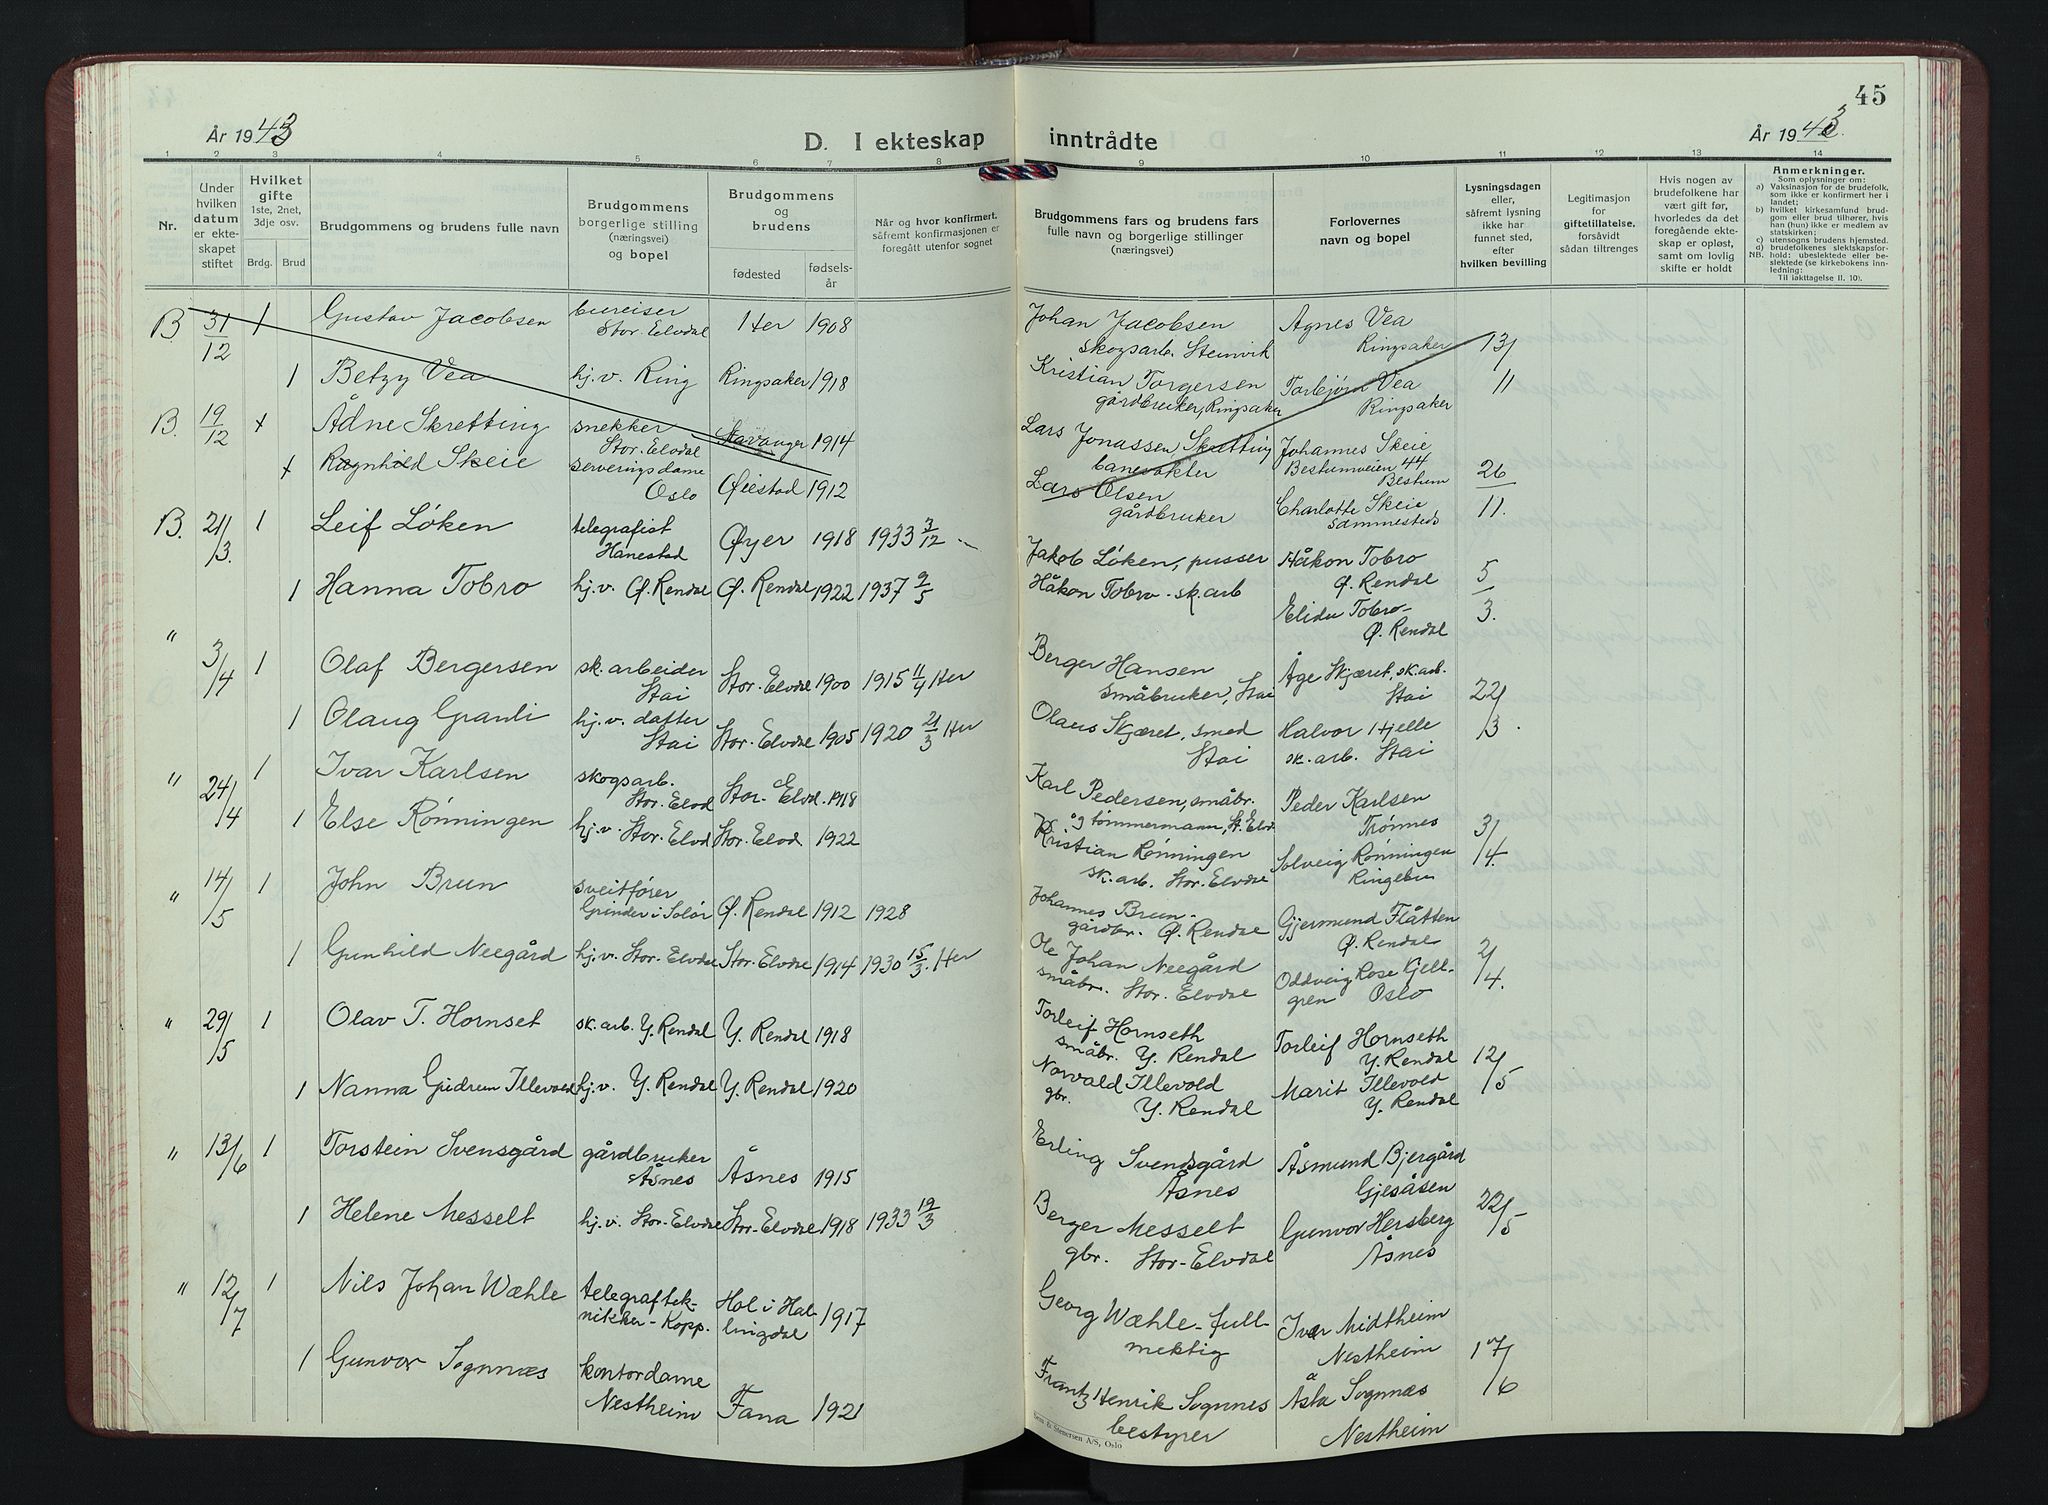 45
År 1943
D. I ekteskap inntrådte
År 1943.
1 2 3 4 5 6 7 8 9 10 11 12 13 14
Nr.
Under
hvilken
datum
er ekte-
skapet
stiftet
Hvilket
gifte
1ste, 2net,
3dje osv.
Brdg.
Brud
Brudgommens og brudens fulle navn
Brudgommens
borgerlige stilling
(næringsvei)
og bopel
Brudgommens
og
brudens
fødested
fødsels-
år
Når og hvor konfirmert.
såfremt konfirmasjonen er
foregått utenfor sognet
Brudgommens fars og brudens fars
fulle navn og borgerlige stillinger
(næringsvei)
Forlovernes
navn og bopel
Lysningsdagen
eller,
såfremt lysning
ikke har
funnet sted,
efter
hvilken bevilling
Legitimasjon
for
giftetillatelse,
forsåvidt
sådan tiltrenges
Hvis nogen av
brudefolkene har
vært gift før,
hvorledes da det
foregående ekte-
skap er opløst,
samt om lovlig
skifte er holdt
Anmerkninger.
Som oplysninger om:
a) Vaksinasjon for de brudefolk,
som ikke er konfirmert her i
landet;
b) hvilket kirkesamfund brud-
gom eller brud tilhører, hvis
han (hun) ikke er medlem av
statskirken;
c) utensogns brudens hjemsted.
d) brudefolkenes slektskapsfor-
NB. hold: ubeslektede eller be-
slektede (se kirkebokens inn-
ledning:
Til iakttagelse II. 10).
B 31/12 1 Gustav Jacobsen bureiser Stor. Elvdal Her 1908
Johan Jacobsen skogsarb. Steinvik Agnes Vea Ringsaker 13/11
1 Betzy Vea hj.v. Ring Ringsaker 1918
Kristian Torgersen gårdbruker, Ringsaker Torbjørn Vea Ringsaker
B. 19/12 + Ådne Skretting snekker Stor. Elvdal Stavanger 1914
Lars Jonassen Skretting banevokter Johannes Skeie Bestumveien 44 Bestum 26/11.
+ Ragnhild Skeie serveringsdame Oslo Øiestad 1912
Lars Olsen gårdbruker Charlotte Skeie sammesteds
B. 21/3. 1 Leif Løken telegrafist Hanestad Øyer 1918 1933 3/12 -
Jakob Løken, pusser Håkon Tobro Ø. Rendal 5/3.
1 Hanna Tobro hj.v. Ø. Rendal Ø. Rendal 1922 1937 9/5
Håkon Tobro - sk.arb Elida Tobro- Ø. Rendal
" 3/4 1 Olaf Bergersen sk. arbeider Stai Stor. Elvdal 1900 1915 11/4 Her
Berger Hansen småbruker, Stai Åge Skjæret, sk.arb. Stai 22/3.
1 Olaug Granli hj.v. datter Stai Stor. Elvdal 1905 1920 21/3 Her
Olaus Skjæret, smed Stai Halvor Hjelle sk. arb. Stai
" 24/4 1 Ivar Karlsen skogsarb. Stor. Elvd Stor. Elvd. 1918
Karl Pedersen, småbr. og tømmermann, St. Elvd Peder Karlsen Trønnes 3/4.
1 Else Rønningen hj.v. Stor. Elvd Stor. Elvd 1922
Kristian Rønningen sk. arb. Stor. Elvdal Solveig Rønningen Ringebu
" 14/5 1 John Brun sveitfører Grinder i Solør Ø. Rendal 1912 1928
Johannes Brun- gårdbr. Ø. Rendal Gjermund Flåtten Ø. Rendal 2/4.
1 Gunhild Neegård hj.v. Stor. Elvdal Stor. Elvdal 1914 1930 15/3. Her
Ole Johan Neegård småbr. Stor. Elvdal Oddveig Rose Kjell-gren Oslo
" 29/5 1 Olav T. Hornset sk. arb. Y. Rendal Y. Rendal 1918
Torleif Hornseth småbr. Y. Rendal Torleif Hornseth Y. Rendal 12/5
1 Nanna Gudrun Illevold hj.v. Y. Rendal Y. Rendal 1920
Norvald Illevold gbr. Y. Rendal Marit Illevold Y. Rendal
" 13/6 1 Torstein Svensgård gårdbruker Åsnes Åsnes 1915
Erling Svendsgård Åsnes Åsmund Bjergård Gjesåsen 22/5
1 Helene Messelt hj.v. Stor-Elvdal Stor-Elvdal 1918 1933 19/3
Berger Messelt gbr. Stor-Elvdal Gunvor Hersberg Åsnes
" 12/7 1 Nils Johan Wæhle telegraftek-nikker - Kopp. Hol i Hal-lingdal 1917
Georg Wæhle - full-mektig Ivar Midtheim Nestheim 17/6
1 Gunvor Sognnæs kontordame Nestheim Fana 1921
Frantz Henrik Sognnes bestyrer Åsta Sognnæs Nestheim
Sem & Stenersen A/S, Oslo